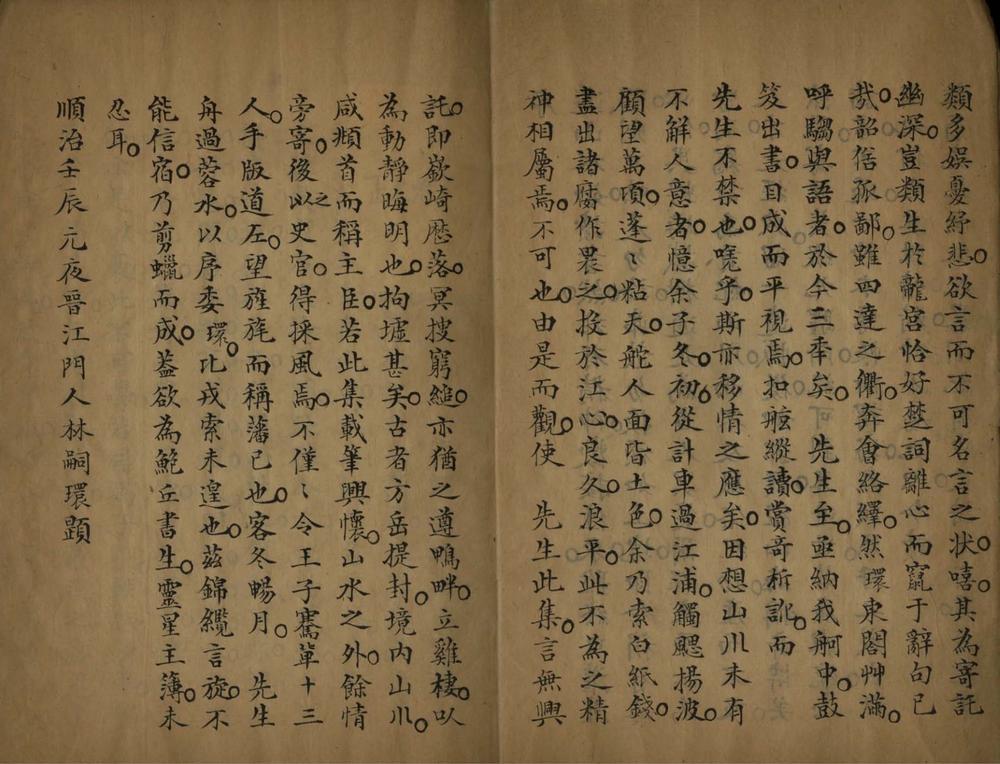 類多娛憂紓悲。欲言而不可名言之狀。嘻。其為寄託
幽深。豈類生於龍宮恰好楚詞離心而竄于辭句已
哉。韶俗孤鄙。雖四達之衢。奔會絡繹。然環東閣艸滿。
呼騶與語者。於今三秊矣。 先生至。亟納我舸中。鼓
笈出書。日成而平視焉。扣舷縱讀。賞奇析訛。而
先生不禁也。嘵乎。斯亦移情之應矣。因想山川未有
不解人意者。憶余子冬。初從計車過江浦。觸颶揚波。
顧望萬項。蓬〻粘天。舵人面皆土色。余乃索白紙錢。
盡出諸牘作畏之。投於江心。良久。浪平。此不為之精
神相屬焉。不可也。由是而觀。使 先生此集。言無興
託。即欲崎歷落。冥搜窮縋。亦猶之遵鴨畔。立雞棲。以
為動靜晦明也。拘墟甚矣。古者方岳提封。境內山川。
咸頫首而稱主臣。若此集載筆興懷。山水之外。餘情
旁寄。後之以史官。得採風焉。不僅〻令王子騫輩十三
人。手版道左。望旌旄而稱藩已也。客冬暢月。 先生
舟過蓉水。以序委環。比戎索未遑也。茲錦纜言旋。不
能信宿。乃剪蠟而成。蓋欲為鮑丘書生。靈星主薄。未
忍耳。
順治壬辰元夜晉江門人林嗣環題